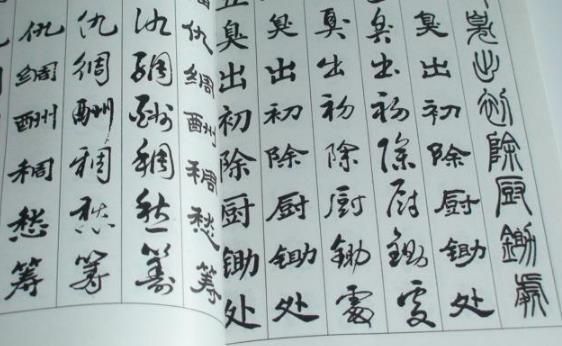 仇绸酬稠愁筹
仇绸酬稠愁筹
仇綢酬稠愁籌
仇绸酬稠愁筹
臭出初除厨锄处
臭出初除厨锄处
臭出初除厨锄處
臭出初除厨锄處
臭出初除厨锄处
臭出初除厨鋤處